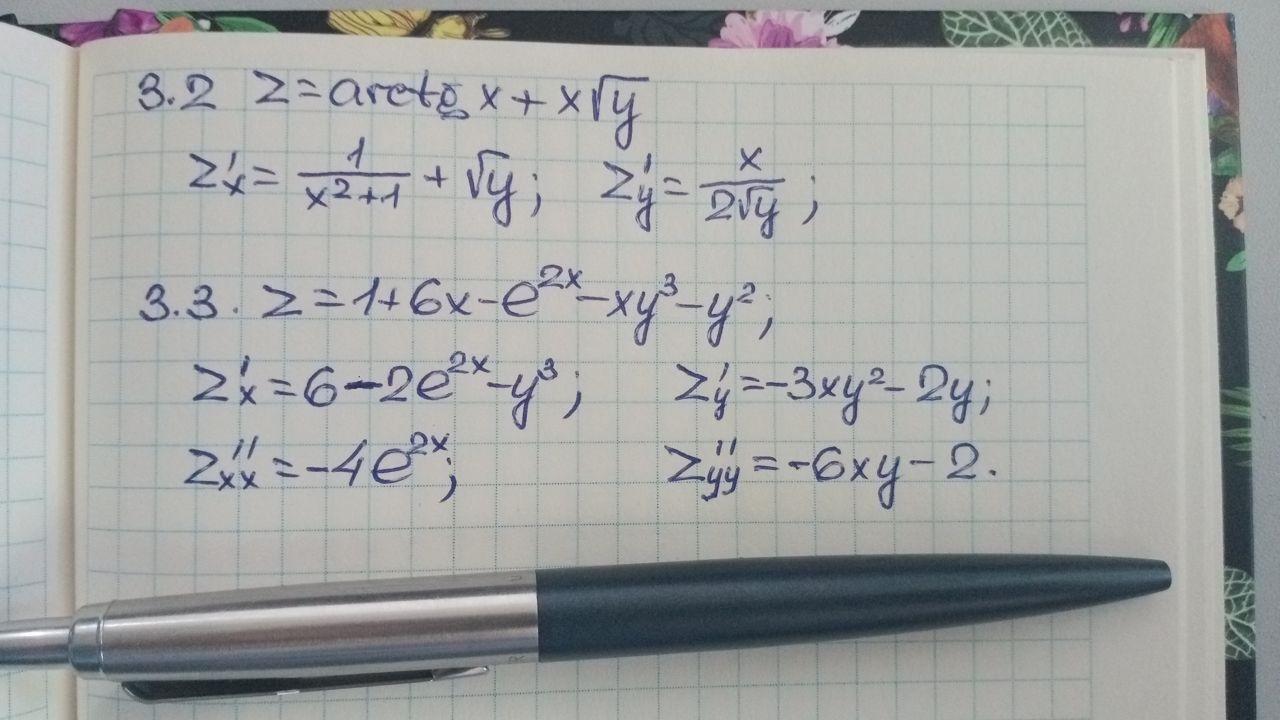 3.2 z = arctg x + x√y
z'ₓ = 1/(x²+1) + √y; z'_y = x/(2√y);
3.3. z = 1+6x-e^{2x}-xy³-y²;
z'ₓ = 6-2e^{2x}-y³; z'_y = -3xy²-2y;
z''ₓₓ = -4e^{2x}; z''_{yy} = -6xy-2.